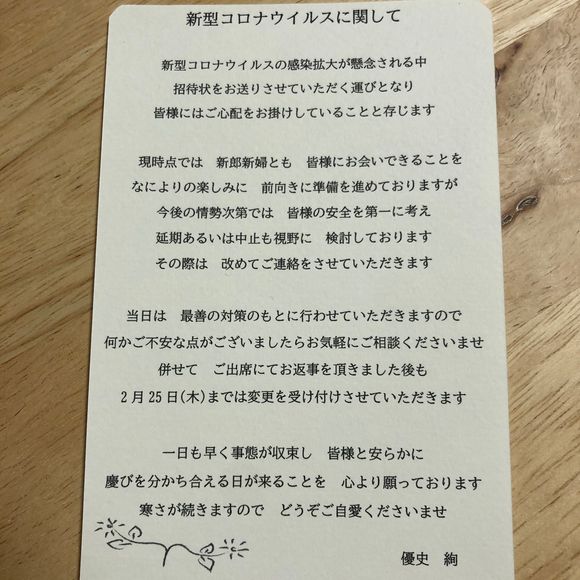 新型コロナウイルスに関して
新型コロナウイルスの感染拡大が懸念される中
招待状をお送りさせていただく運びとなり
皆様にはご心配をお掛けしていることと存じます
現時点では　新郎新婦とも　皆様にお会いできることを
なによりの楽しみに　前向きに準備を進めておりますが
今後の情勢次第では　皆様の安全を第一に考え
延期あるいは中止も視野に　検討しております
その際は　改めてご連絡をさせていただきます
当日は　最善の対策のもとに行わせていただきますので
何かご不安な点がございましたらお気軽にご相談くださいませ
併せて　ご出席にてお返事を頂きました後も
2月25日(木)までは変更を受け付けさせていただきます
一日も早く事態が収束し　皆様と安らかに
慶びを分かち合える日が来ることを　心より願っております
寒さが続きますので　どうぞご自愛くださいませ
優史　絢